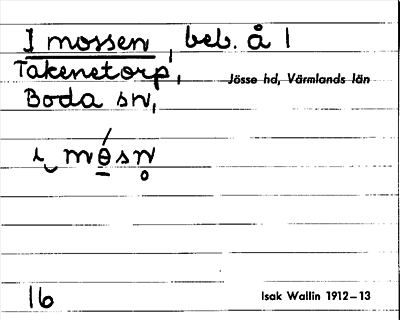 I mossen, beb. å 1
Takenetorp,
Jösse hd, Värmlands län
Boda sn,
ɩ‿mɵ́sn̥
16
Isak Wallin 1912–13